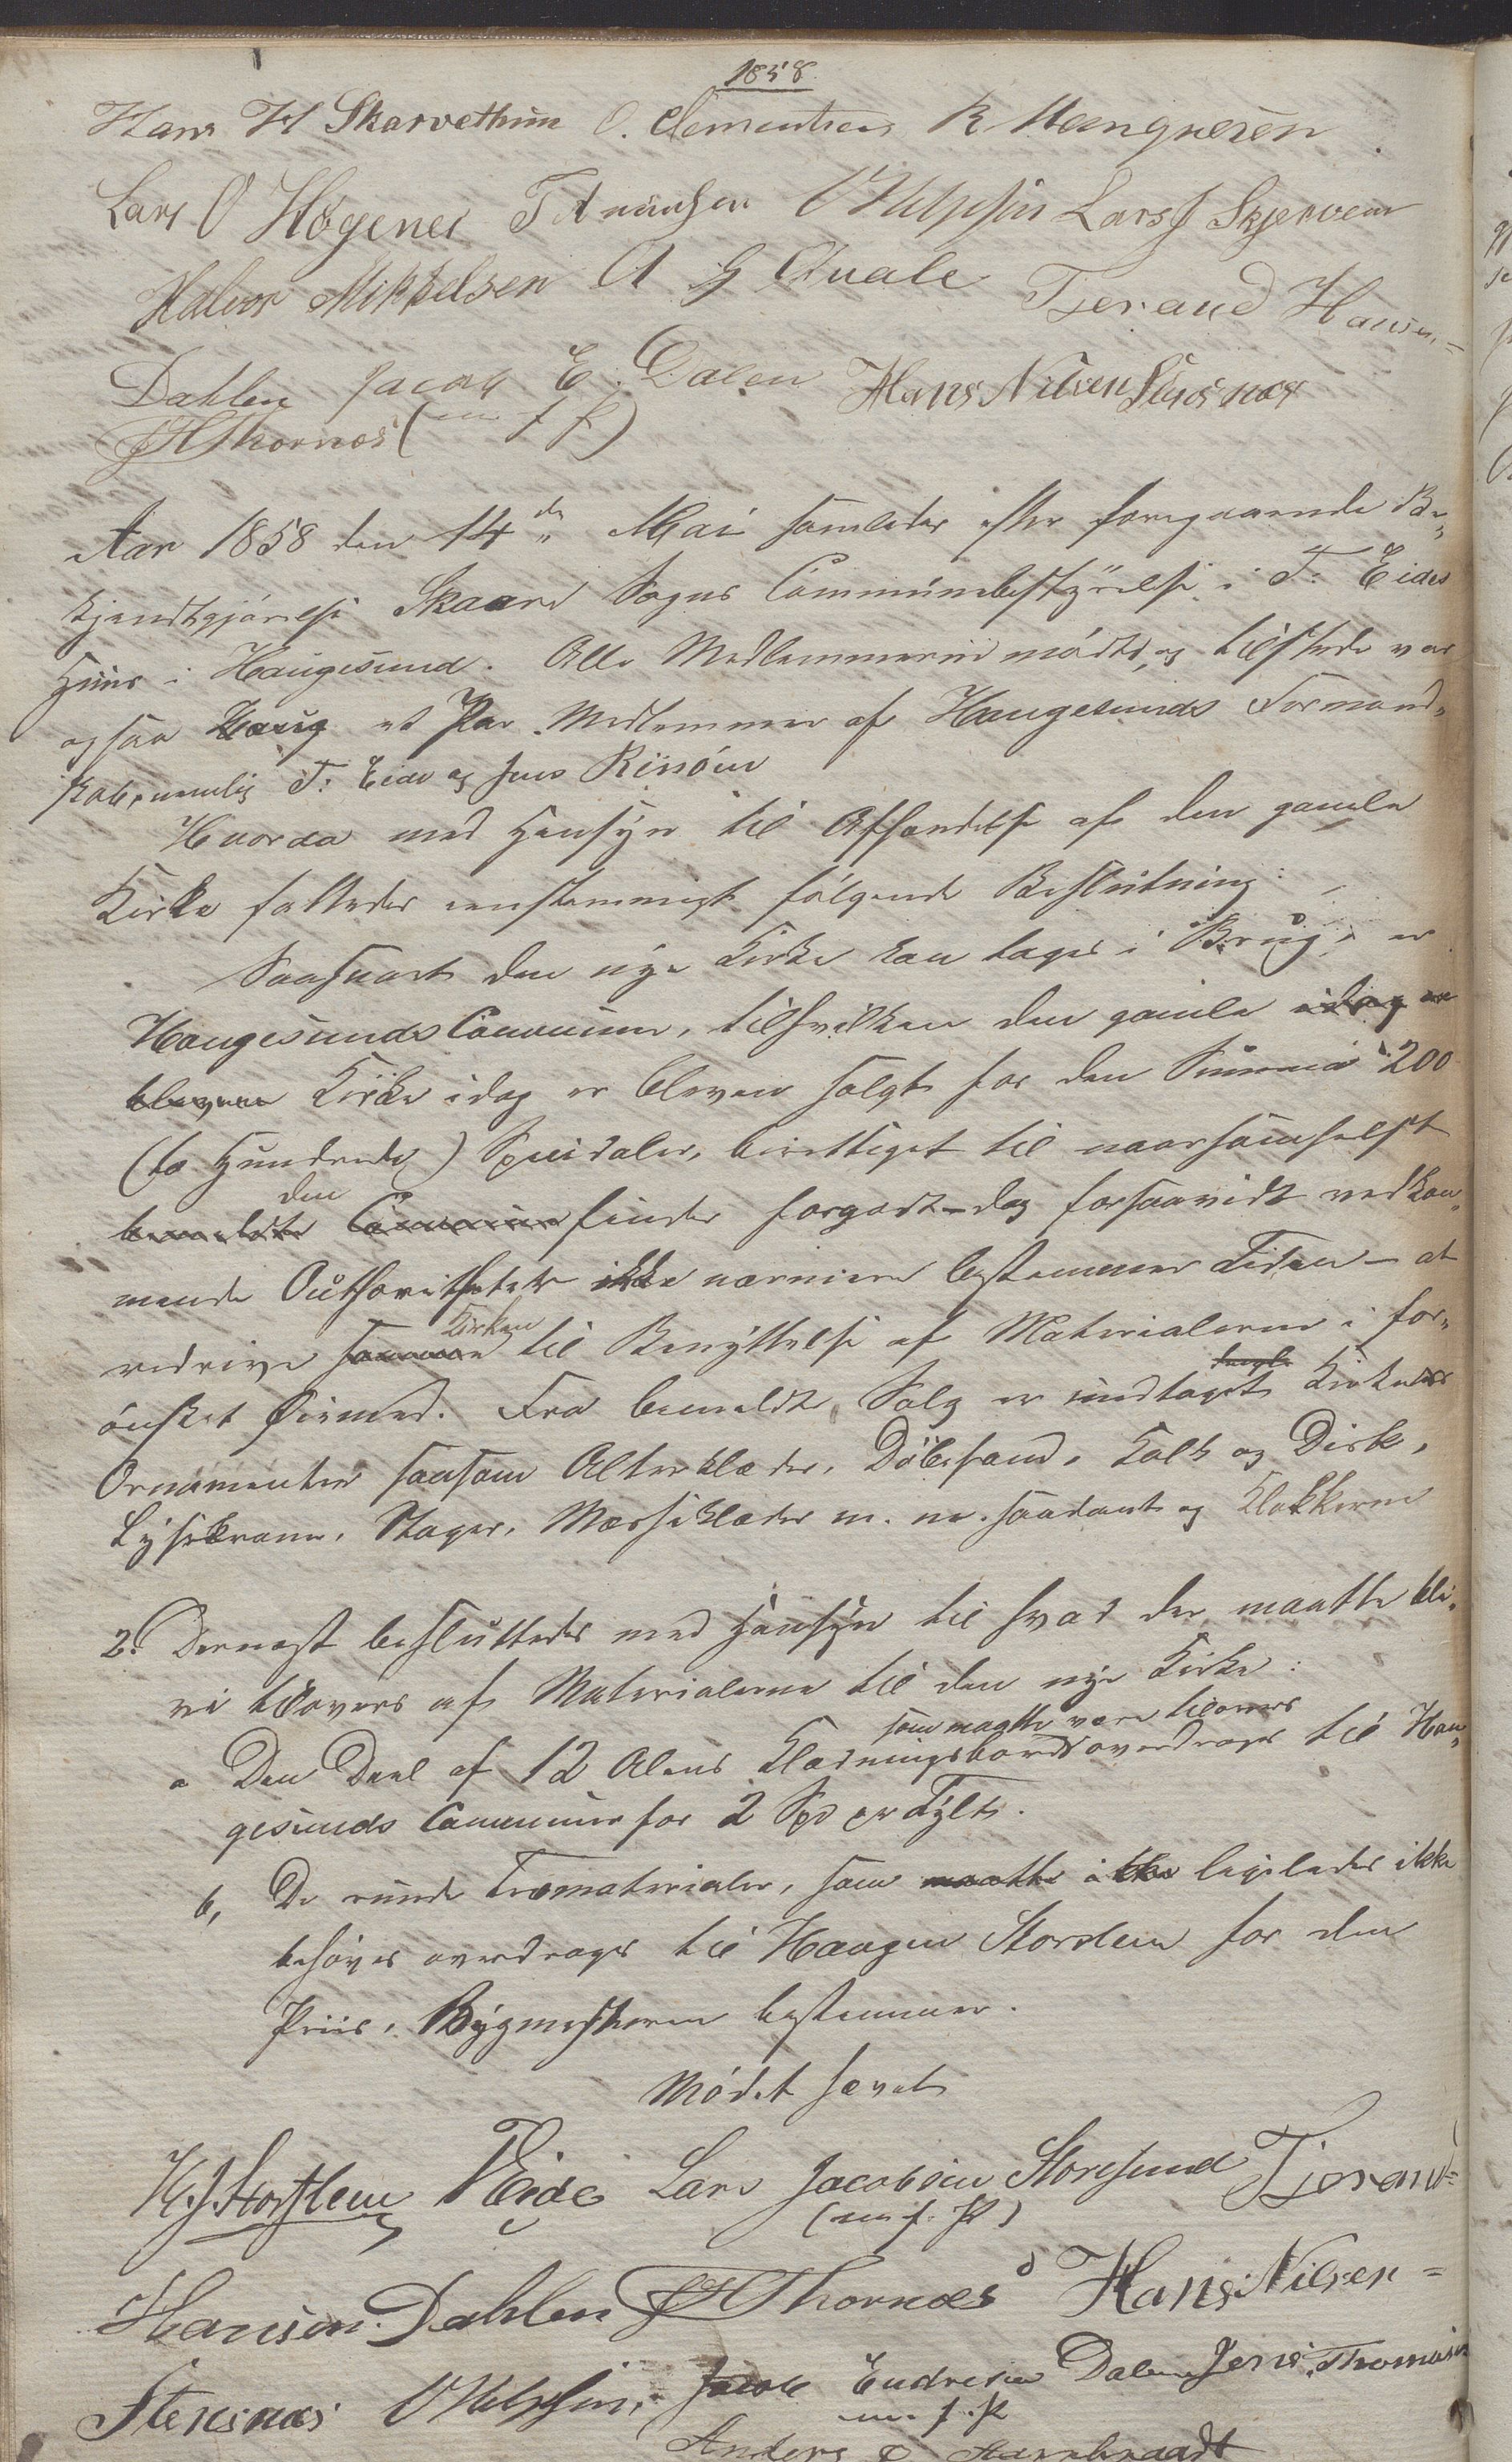 1858.
Hans H Skarvethun O. Clementsen R. Mangnesen
Lars O Högenes T Amundsen Lars J Skjerveen
Halvor Mikkelsen A G Quale Tjerand Hansen=
Dahlen Jacob E. Dalen Hans Nilsen Stensnæs
JHThornæs (m f P)
Aar 1858 den 14de Mai samledes efter foregaaende Be-
kjendtgjørelse Skaare Sogns Communebestyrelse i T. Eides
Huus i Haugesund. Alle Medlemmerne mødte, og tilstede var
ogsaa Haug et Par Medlemmer af Haugesunds Formand-
skab, nemlig T. Eide og Jens
Hvorda med Hensyn til Afhændelse af den gamle
Kirke fattedes eenstemmigt følgende Beslutning:
Saasnart den nye Kirke kan tages i Brug, er
Haugesunds Commune, tilhvilken den gamle idag er
bleven Kirke idag er bleven solgt for den Summa 200
(to Hundrede) Speidaler, berettiget til naarsomhelst
bemeldte den Commune finder forgodt – dog forsaavidt vedkom-
mende Authoritheter ikke nærmere bestemmer Tiden – at
nedrive samme Kirken til Benyttelse af Materialerne i for-
ønsket Øiemed. Fra bemeldte Salg er undtaget Kirkens
Ornamenter saasom Alterklæder, Døbefand, Kalk og Disk,
Lysekrone, Stager, Messeklæder m. m. saadant og Klokkerne
2. Dernæst besluttedes med Hensyn til hvad der maatte bli-
ve tilovers af Materialerne til den nye Kirke:
a Den Deel af 12 Alens Klædningsbord som maatte være tilovers overdrages til Hau-
gesunds Commune for 2 Spd pr Tylt.
b, De runde Træmaterialer, som maatte ikke ligeledes ikke
behøves overdrages til Haagen Storslem for den
Priis, Bygmesteren bestemmer.
Mødet hævet
H J Storslem TEide Lars Jacobsen Storesund Tjerand=
(m. f. P)
Hansen Dahlen JHThornæs Hans Nilsen=
Stensnæs Jacob Endresen Dalen Jens Thomasen
m. f. P
Anders